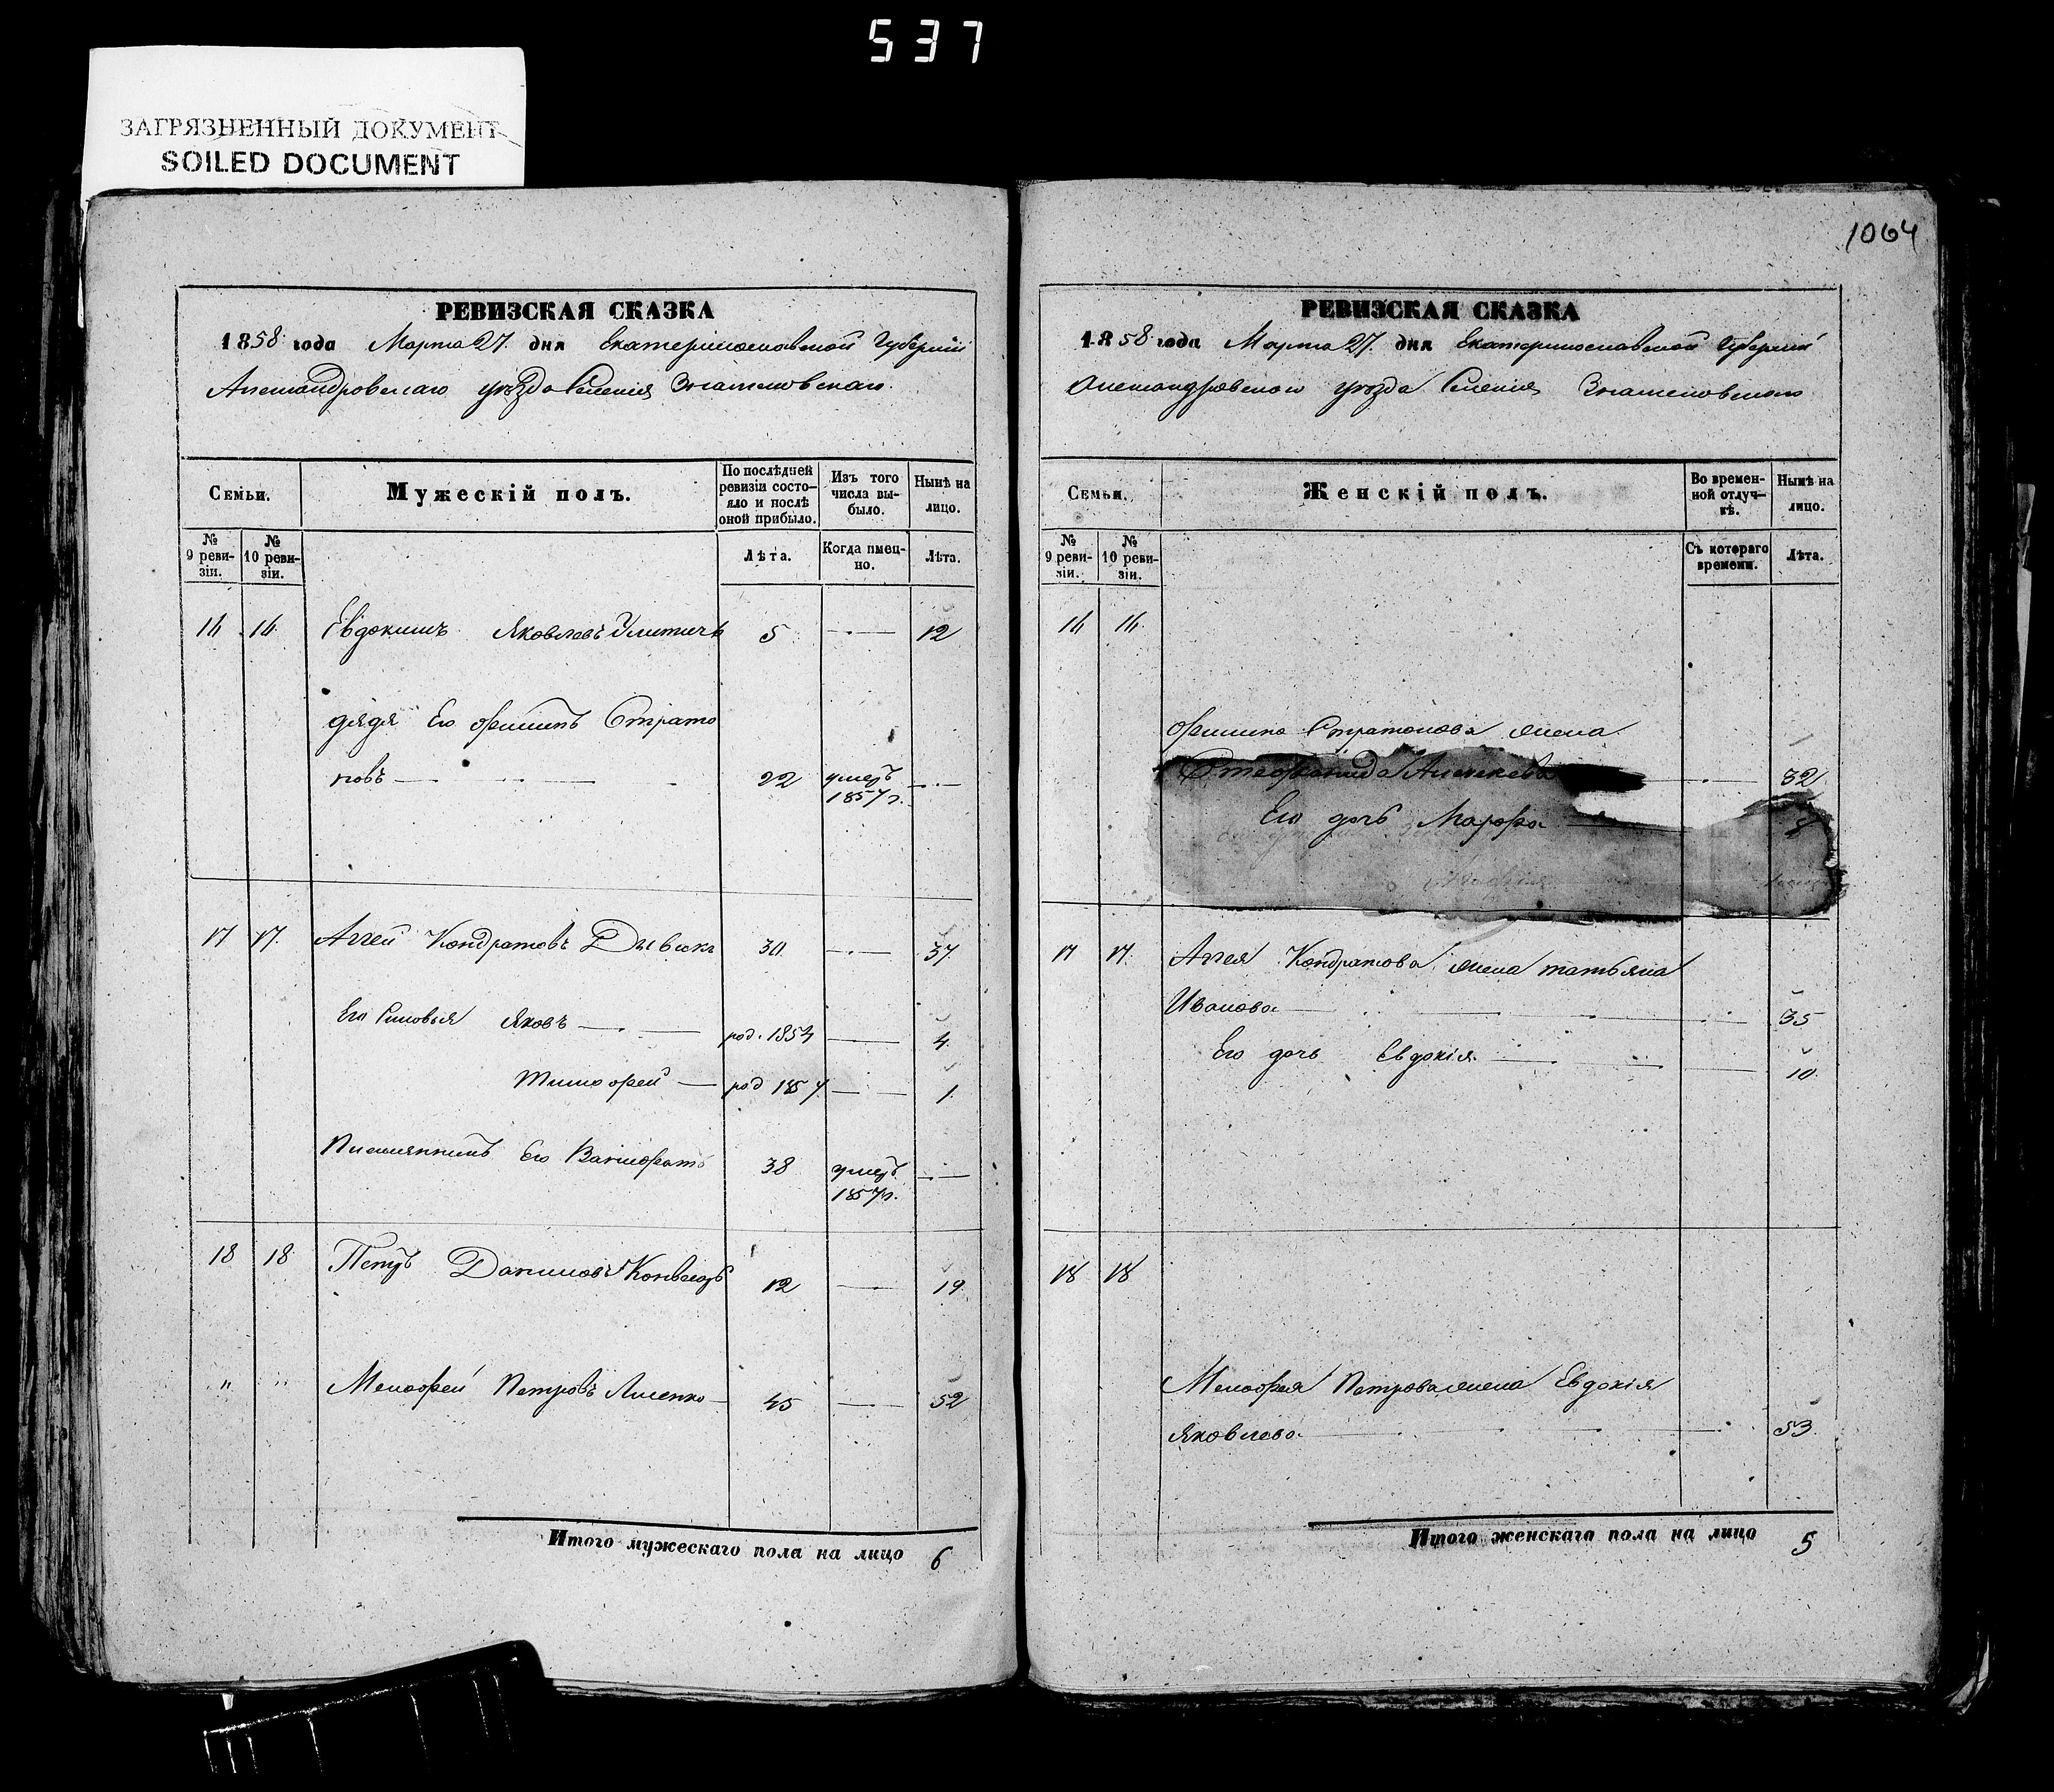 537
ЗАГРЯЗНЕННЫЙ ДОКУМЕНТ
SOILED DOCUMENT
РЕВИЗСКАЯ СКАЗКА
1858 года Марта 27. дня Екатеринославской Губерніи
Александровскаго уѣзда Селенія Знаменовскаго.
Семьи.
Мужескій полъ.
По послѣдней ревизіи состояло и послѣ оной прибыло.
Изъ того числа выбыло.
Нынѣ на лицо.
№ 9 ревизіи.
№ 10 ревизіи.
Лѣта.
Когда именно.
Лѣта.
16 16 Евдокимъ Яковлевъ 5 12
дядя Его Филипъ Страто
новъ 22 умеръ 1857 г.
17 17. Аггей Кондратовъ 30 37.
Его Сыновья Яковъ род. 1854 4.
Тимофей род 1857 1.
Племянникъ Его 38 умеръ 1857 г.
18 18 Петръ Даниловъ 12 19
" " Мелофей Петровъ Лисенко 45 52
Итого мужескаго пола на лицо 6
1064
РЕВИЗСКАЯ СКАЗКА
1858 года Марта 27. дня Екатеринославской Губерніи
Александровскаго уѣзда Селенія Знаменовскаго
Семьи.
Женскій полъ.
Во временной отлучкѣ.
Нынѣ на лицо.
№ 9 ревизіи.
№ 10 ревизіи.
Съ котораго времени.
Лѣта.
16 16.
Филипа Стратонова жена
Стефанида Алексеева 32
Его дочь Марфа
17 17. Аггея Кондратова жена татьяна
Иванова 35
Его дочь Евдокія 10.
18 18
Мелофея Петрова жена Евдокія
Яковлева 53.
Итого женскаго пола на лицо 5